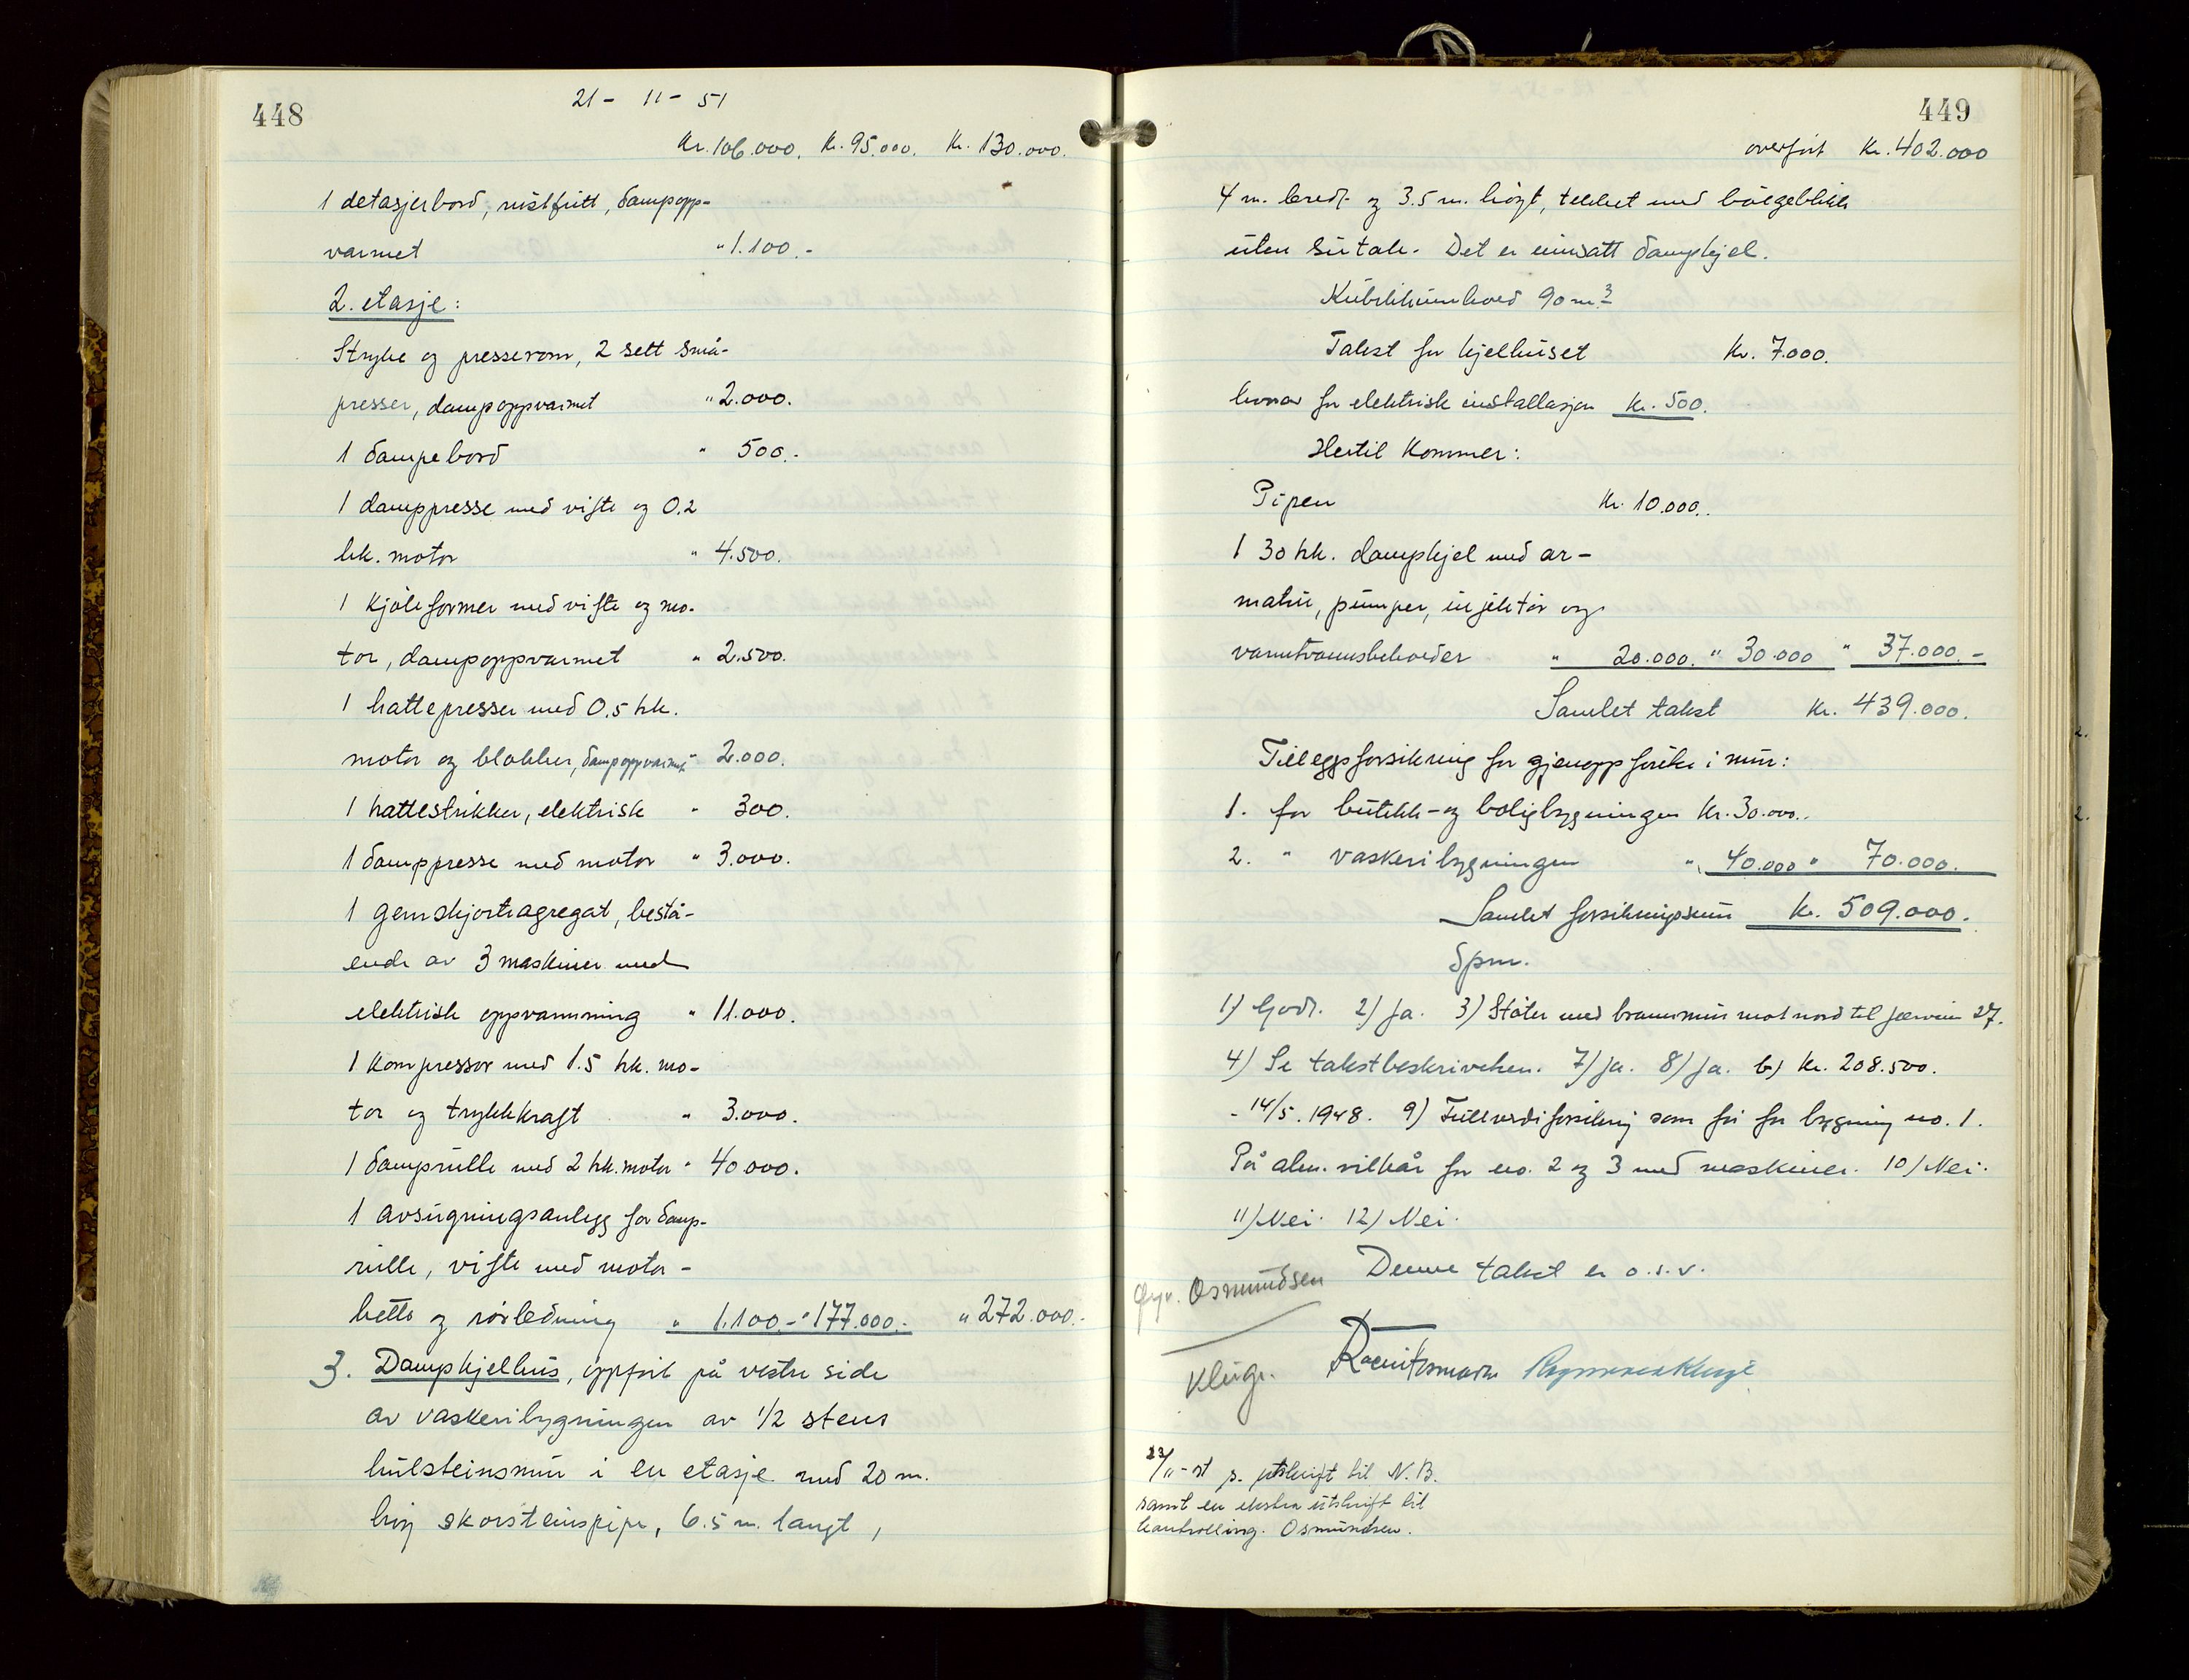 448
21 - 11 - 51
Kr. 106.000. Kr. 95.000. Kr. 130.000.
1 detasjerbord, rustfritt, dampopp-
varmet " 1.100.-
2. etasje:
Stryke og presserom, 2 sett små-
presser, dampoppvarmet " 2.000.
1 dampebord " 500.-
1 damppresse med vifte og 0.2
hk. motor " 4.500.
1 kjoleformer med vifte og mo-
tor, dampoppvarmet " 2.500.
1 hattepresser med 0.5 hk.
motor og blokker, dampoppvarmet " 2.000.
1 hattestrikker, elektrisk " 300.
1 damppresse med motor " 3.000.
1 gemskjortragregat, bestå-
ende av 3 maskiner med
elektrisk oppvarmning " 11.000.
1 kompressor med 1.5 hk. mo-
tor og trykkkraft " 3.000.
1 damprulle med 2 hk. motor " 40.000.
1 avsugningsanlegg for damp-
rulle, vifte med motor -
hette og rørledning " 1.100.- " 177.000.- " 272.000.-
3. Dampkjelhus, oppført på vestre side
av vaskeribygningen av 1/2 stens
hulsteinsmur i en etasje med 20 m.
høy skorsteinspipe, 6.5 m. langt,
449
overført Kr. 402.000
4 m. bredt og 3.5 m. høyt, tekket med bølgeblikk
uten sutak. Det er innsatt dampkjel.
Kubikkinnhold 90 m3
Takst for kjelhuset Kr. 7.000.
hvorav for elektrisk installasjon Kr. 500.
Hertil kommer:
Pipen Kr. 10.000.
1 30 hk. dampkjel med ar-
matur, pumper, injektor og
varmtvannsbeholder " 20.000. " 30.000 " 37.000.-
Samlet takst Kr. 439.000.
Tilleggsforsikring for gjenoppførelse i mur:
1. for butikk- og boligbygningen Kr. 30.000.
2. " vaskeribygningen " 40.000 " 70.000.
Samlet forsikringssum Kr. 509.000.
Spm.
1) Godt. 2) Ja. 3) Støter med brannmur mot nord til 27.
4) Se takstbeskrivelsen. 7) Ja. 8) Ja. b) Kr. 208.500.
- 14/5. 1948. 9) Fullverdiforsikring som før for bygning no. 1.
På alm. vilkår for no. 2 og 3 med maskiner. 10) Nei.
11) Nei. 12) Nei.
Denne takst er o.s.v.
Osmundsen
Kluge.
23/11-51 s. utskrift til N.B.
samt en ekstra utskrift til
Osmundsen.